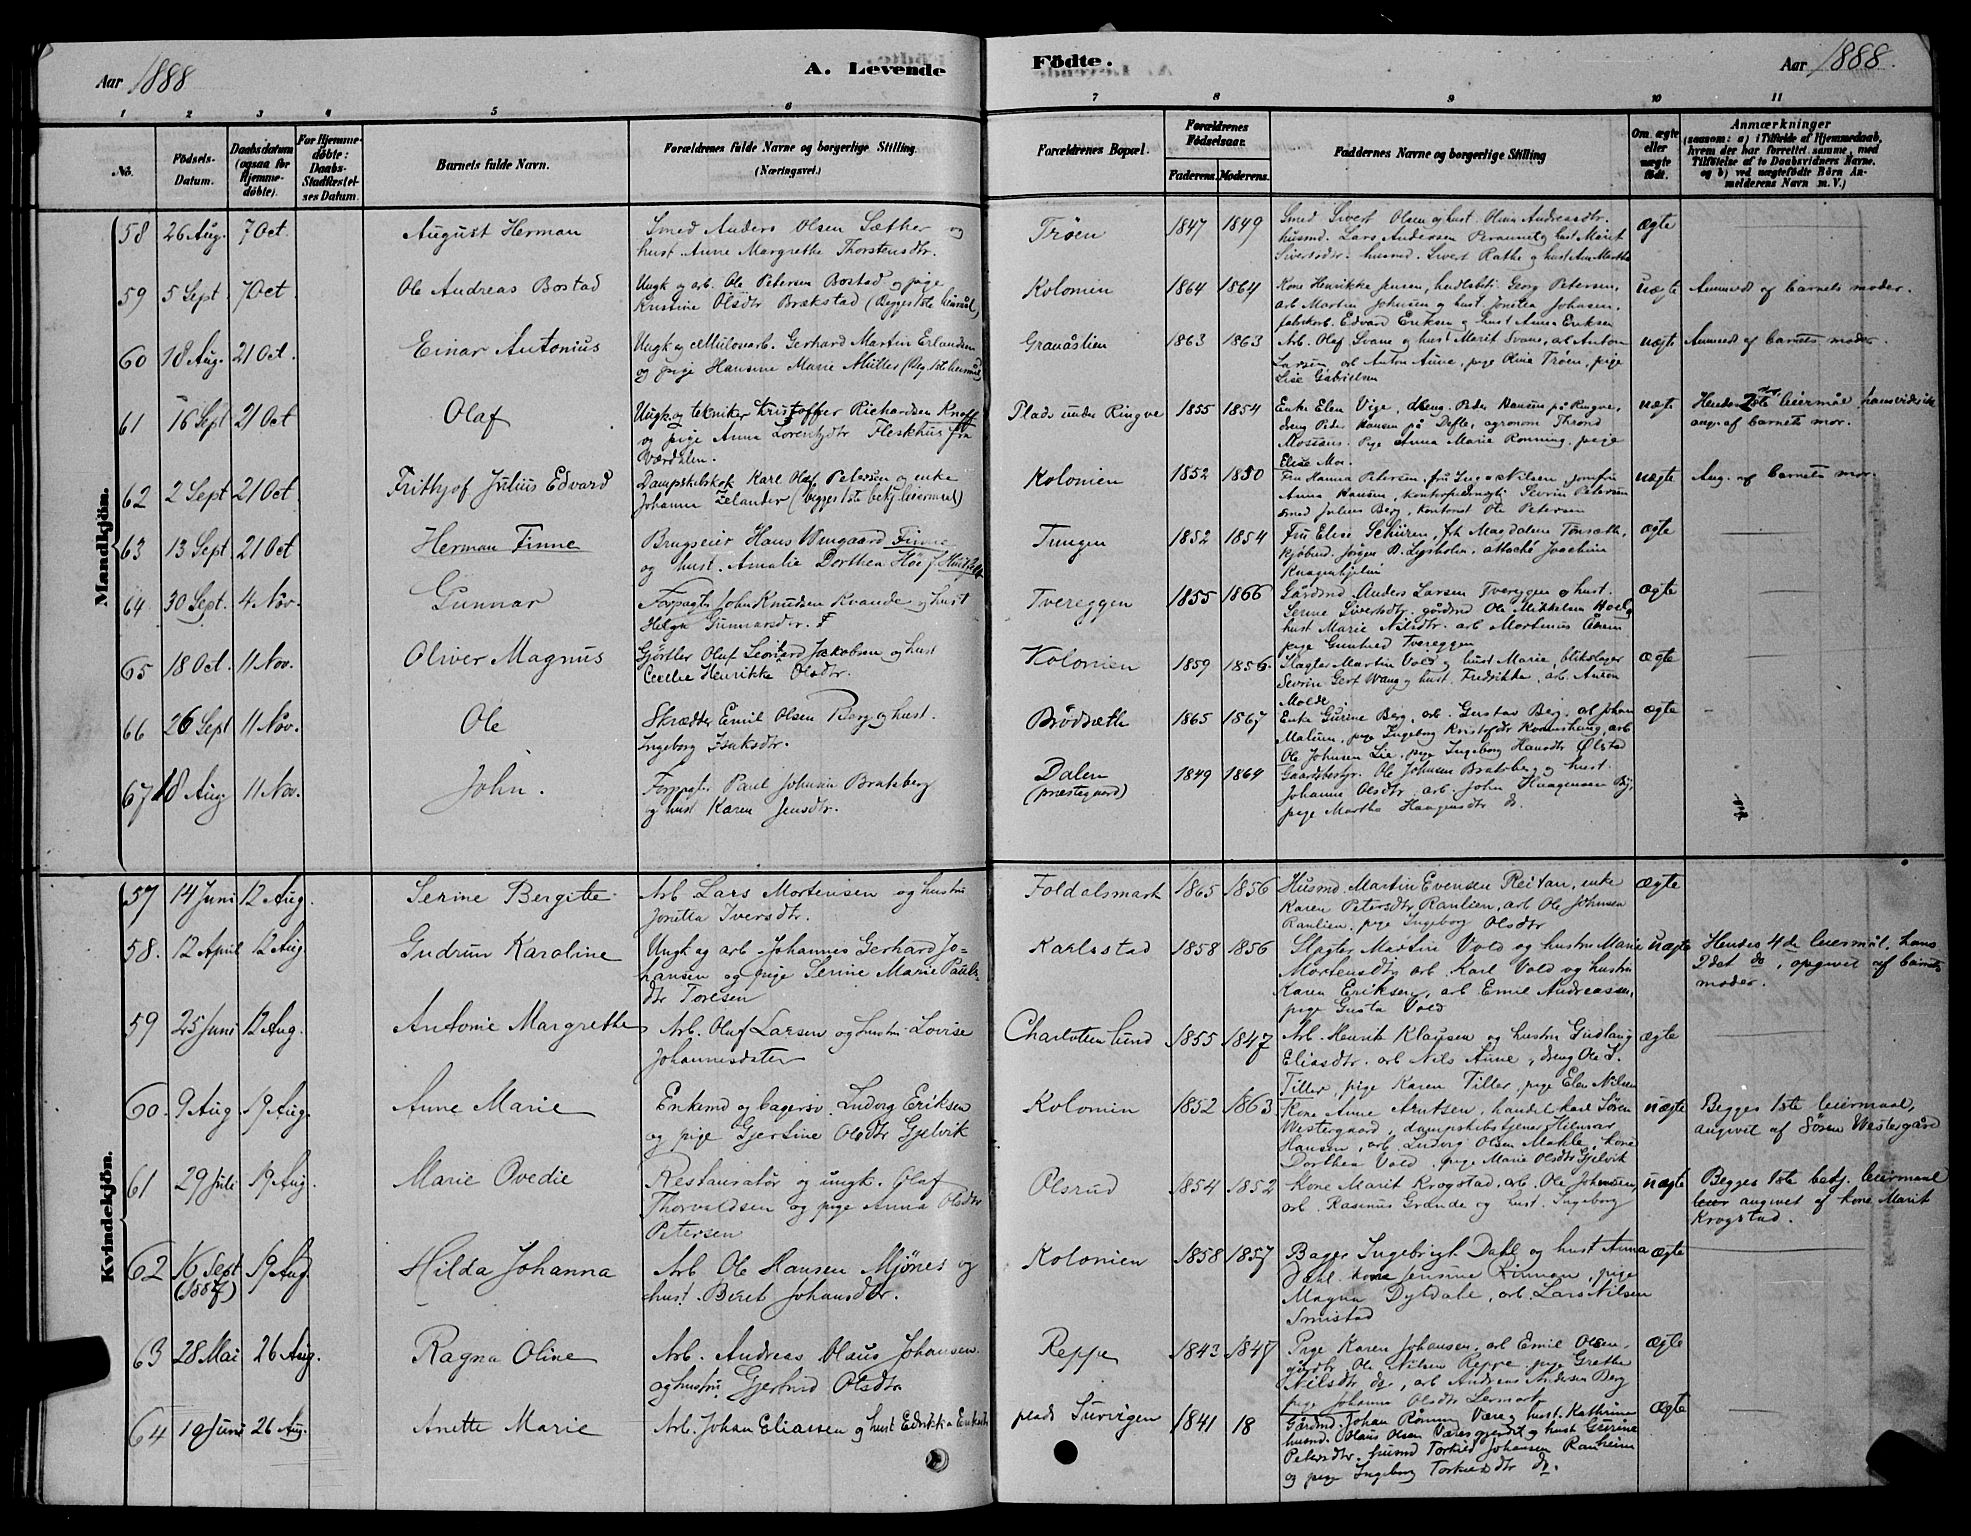 Aar 1888
A. Levende
Födte.
Aar 1888.
1 2 3 4 5 6 7 8 9 10 11
No.
Födsels-
Datum.
Daabsdatum
(ogsaa for
Hjemme-
döbte).
For Hjemme-
döbte:
Daabs-
Stadfæstel-
ses Datum.
Barnets fulde Navn.
Forældrenes fulde Navne og borgerlige Stilling.
(Næringsvei.)
Forældrenes Bopæl.
Forældrenes
Födselsaar.
Faderens. Moderens.
Faddernes Navne og borgerlige Stilling
Om ægte
eller
uægte
födt.
Anmærkninger
(saasom: a) i Tilfælde af Hjemmedaab,
hvem der har forrettet samme, med
Tilföielse af to Daabsvidners Navne.
og b) ved uægtefödte Börn An-
melderens Navn m. V.)
Mandkjön.
58 26 Aug. 7 Oct. August Herman
Smed Anders Olsen Sæther og
hust Anne Margrethe Thorstensdtr.
Tröen 1847 1849
Smed Sivert Olsen og hust. Olina Andreasdtr.
husmd. Lars Andersen og hust Marit
Sivertsdtr. husmd. Sivert Rathe og hust Ane Martha
ægte
59 5 Sept. 7 Oct. Ole Andreas Bostad
Ungk og arb. Ole Petersen Bostad og pige
Kristine Olsdtr Brækstad (Begges 1ste leiermål)
Kolonien 1864 1864
Kone Henrikke Jensen, Georg Petersen,
arb Martin Johnsen og hust. Jonetta Johnsen,
fabrikarb. Edvard Eriksen og hust Anna Eriksen
uægte Anmeldt af barnets moder.
60 18 Aug. 21 Oct. Einar Antonius
Ungk og Gerhard Martin Erlandsen
og pige Hansine Marie Müller (Beg. 1ste leiermål)
Granåslien 1863 1863
Arb. Olaf Svane og hust Marit Svane, arb Anton
Larsen, arb Anton Aune, pige Olina Tröen, pige
Lise Gabrielsen
uægte Anmeldt af barnets moder.
61 16 Sept 21 Oct Olaf
Ungk og tekniker Kristoffer Richardsen Knoff
og pige Anna Lorentsdtr Fleskhus fra
Værdalen.
Plads under Ringve 1855 1854
Enke Elen Vige, dreng. Peder Hansen på Ringve,
dreng Peder Hansen på Defle, agronom Thrond
Mostaus. Pige Anna Marie Rönning, pige
Elise Moe.
uægte Hendes 2det leiermål, hans vides ikke
ang. af barnets mor.
62 2 Sept 21 Oct Frithjof Julius Edvard
Dampskibskok Karl Olaf Petersen og enke
Johanna Zelander (begges 1ste betj leiermål)
Kolonien 1852 1850
Fru Hanna Petersen, fru Inga Nilsen, jomfru
Anna Hansen, Sevrin Petersen
smed Julius Berg, kontorist Ole Petersen
uægte Ang. af barnets mor.
63 13 Sept 21 Oct Herman Finne
Brugseier Hans Wengaard Finne
og hust. Amalie Dorthea Höe f.
Tungen 1852 1854
Fru Elise Schüren, frk Magdalene Tonsæth,
kjöbmd. Jörgen B. Lysholm, attaché Joachim
Knagenhjelm
ægte
64 30 Sept. 4 Nov. Gunnar
Forpagter John Knudsen Kvande og hust
Helga Gunnarsdtr.
Tvereggen 1855 1866
Gårdmd. Anders Larsen Tvereggen og hust.
Serine Sivertsdtr. gårdmd Ole Mikkelsen og
hust Marie Nilsdtr. arb Martinus Åsen
pige Gunhild Tvereggen
ægte
65 18 Oct. 11 Nov. Oliver Magnus
Gjörtler Oluf Leonard Jakobsen og hust
Cecilie Henrikke Olsdtr.
Kolonien 1859 1856.
Slagter Martin Vold og hust Marie, blikslager
Sevrin Gert Wang og hust. Fredrikke, arb. Anton
Molde.
ægte
66 26 Sept 11 Nov. Ole
Skrædder Emil Olsen Berg og hust.
Ingeborg Isaksdtr.
Brödsæth 1865 1867
Enke Gurine Berg, arb. Gustav Berg, arb Johan
Malum, pige Ingeborg Kristofdtr, arb
Ole Johnsen Lie, pige Ingeborg Hansdtr Ölstad
ægte
67 18 Aug 11 Nov. John.
Forpagter Paul Johnsen Bratsberg
og hust Karen Jensdtr.
Dalen
(præstegaard) 1849 1864
Gaardbestyr. Ole Johnsen Bratsberg og hust.
Johanna Olsdtr arb. John Haagensen
pige Martha Haagensdtr do.
Kvindekjön.
57 14 Juni 12 Aug. Serine Bergitte
Arb. Lars Mortensen og hustru
Jonetta Iversdtr.
Foldalsmark 1865 1856
Husmd. Martin Evensen Reitan, enke
Karen Petersdtr Ranlien, arb Ole Johnsen
Ranlien, pige Ingeborg Olsdtr
ægte
58. 12 April 12 Aug. Gudrun Karoline
Ungk og arb Johannes Gerhard Jo-
hansen og pige Serine Marie Pauls-
dtr Toresen
Karlsstad 1858 1856
Slagter Martin Vold og hustru Marie
Mortensdtr, arb Karl Vold og hustru
Karen Eriksen, arb Emil Andreassen,
pige Gusta Vold
uægte Hendes 4de leiermål, hans
2det do, opgivet af barnets
moder.
59 25 Juni 12 Aug. Antonie Margrethe
Arb. Oluf Larsen og hustru Lovise
Johannesdatter
Charlottenlund 1855 1847
Arb. Henrik Klausen og hustru Gudlaug
Eliasdtr. arb Nils Aune, dreng Ole S.
Tiller, pige Karen Tiller, pige Elen Nilsen
ægte
60. 9 Aug 19 Aug. Anne Marie
Enkemd og bagersv. Ludvig Eriksen
og pige Gjertine Olsdtr Gjelvik
Kolonien 1852 1863
Kone Anne Arntsen, handelskarl Sören
Westergaard, dampskibstjener Hilmar
Hansen, arb. Ludvig Olsen Mæhle, kone
Dorthea Vold, pige Marie Olsdtr Gjelvik
uægte Begges 1ste leiermaal,
angivet af Sören Westergård
61 29 Juli 19 Aug. Marie Ovedie
Restauratør og ungk. Olaf
Thorvaldsen og pige Anna Olsdtr
Petersen
Olsrud 1854 1852
Kone Marit Krogstad, arb. Ole Johnsen,
arb. Rasmus Grande og hust. Ingeborg
uægte Begges 1ste betj. leiermaal
angivet af kone Marit
Krogstad.
62 16 Sept
(1887) 19 Aug. Hilda Johanna
Arb. Ole Hansen Mjönes og
hust. Beret Johansdtr.
Kolonien 1858 1857
Bager Ingebrigt Dahl og hust Anna
Dahl. kone Jensine Kinman, pige
Magna Dybdahl, arb. Lars Nilsen
Smistad
ægte
63 28 Mai 26 Aug. Ragna Oline
Arb. Andreas Olaus Johansen
og hustru Gjertrud Olsdtr
Reppe 1843 1847
Pige Karen Johansen, arb Emil Olsen,
gårdbr. Ole Nilsen Reppe, pige Grethe
Nilsdtr do, arb Andreas Andersen Berg
pige Johanna Olsdtr
ægte
64 19 Juni 26 Aug. Anette Marie
Arb. Johan Eliassen og hust Edrikka Eriksdtr
plads 1841 18
Gårdmd. Johan Rönning Være og hust. Kathrine
husmd. Olaus Olsen og hust Gurine
Petersdtr. husmd Torkild Johansen Ranheim
og pige Ingeborg Torkildsdtr do.
ægte